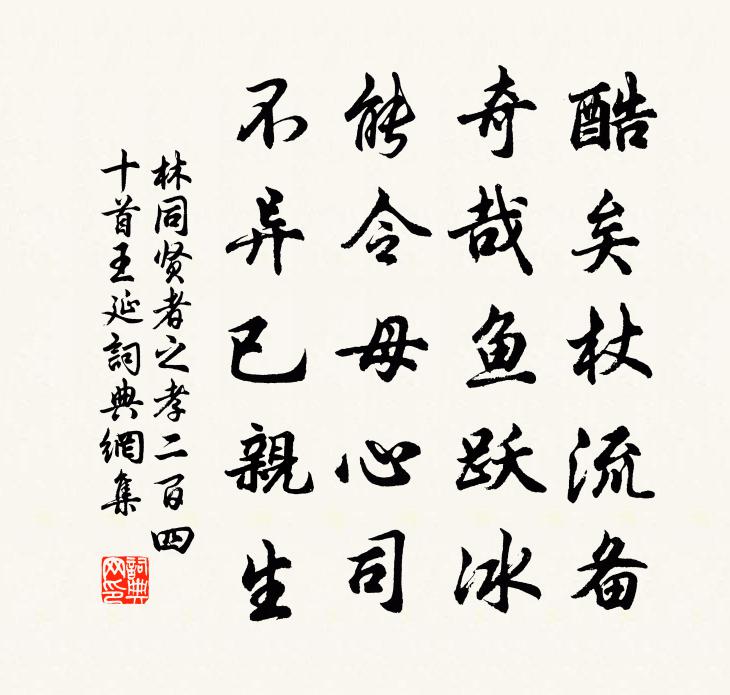 酷矣杖流备
奇哉鱼跃冰
能令母心司
不异已親生
林同贤者之孝二百四
十首王延詞典網集
詞典
网印